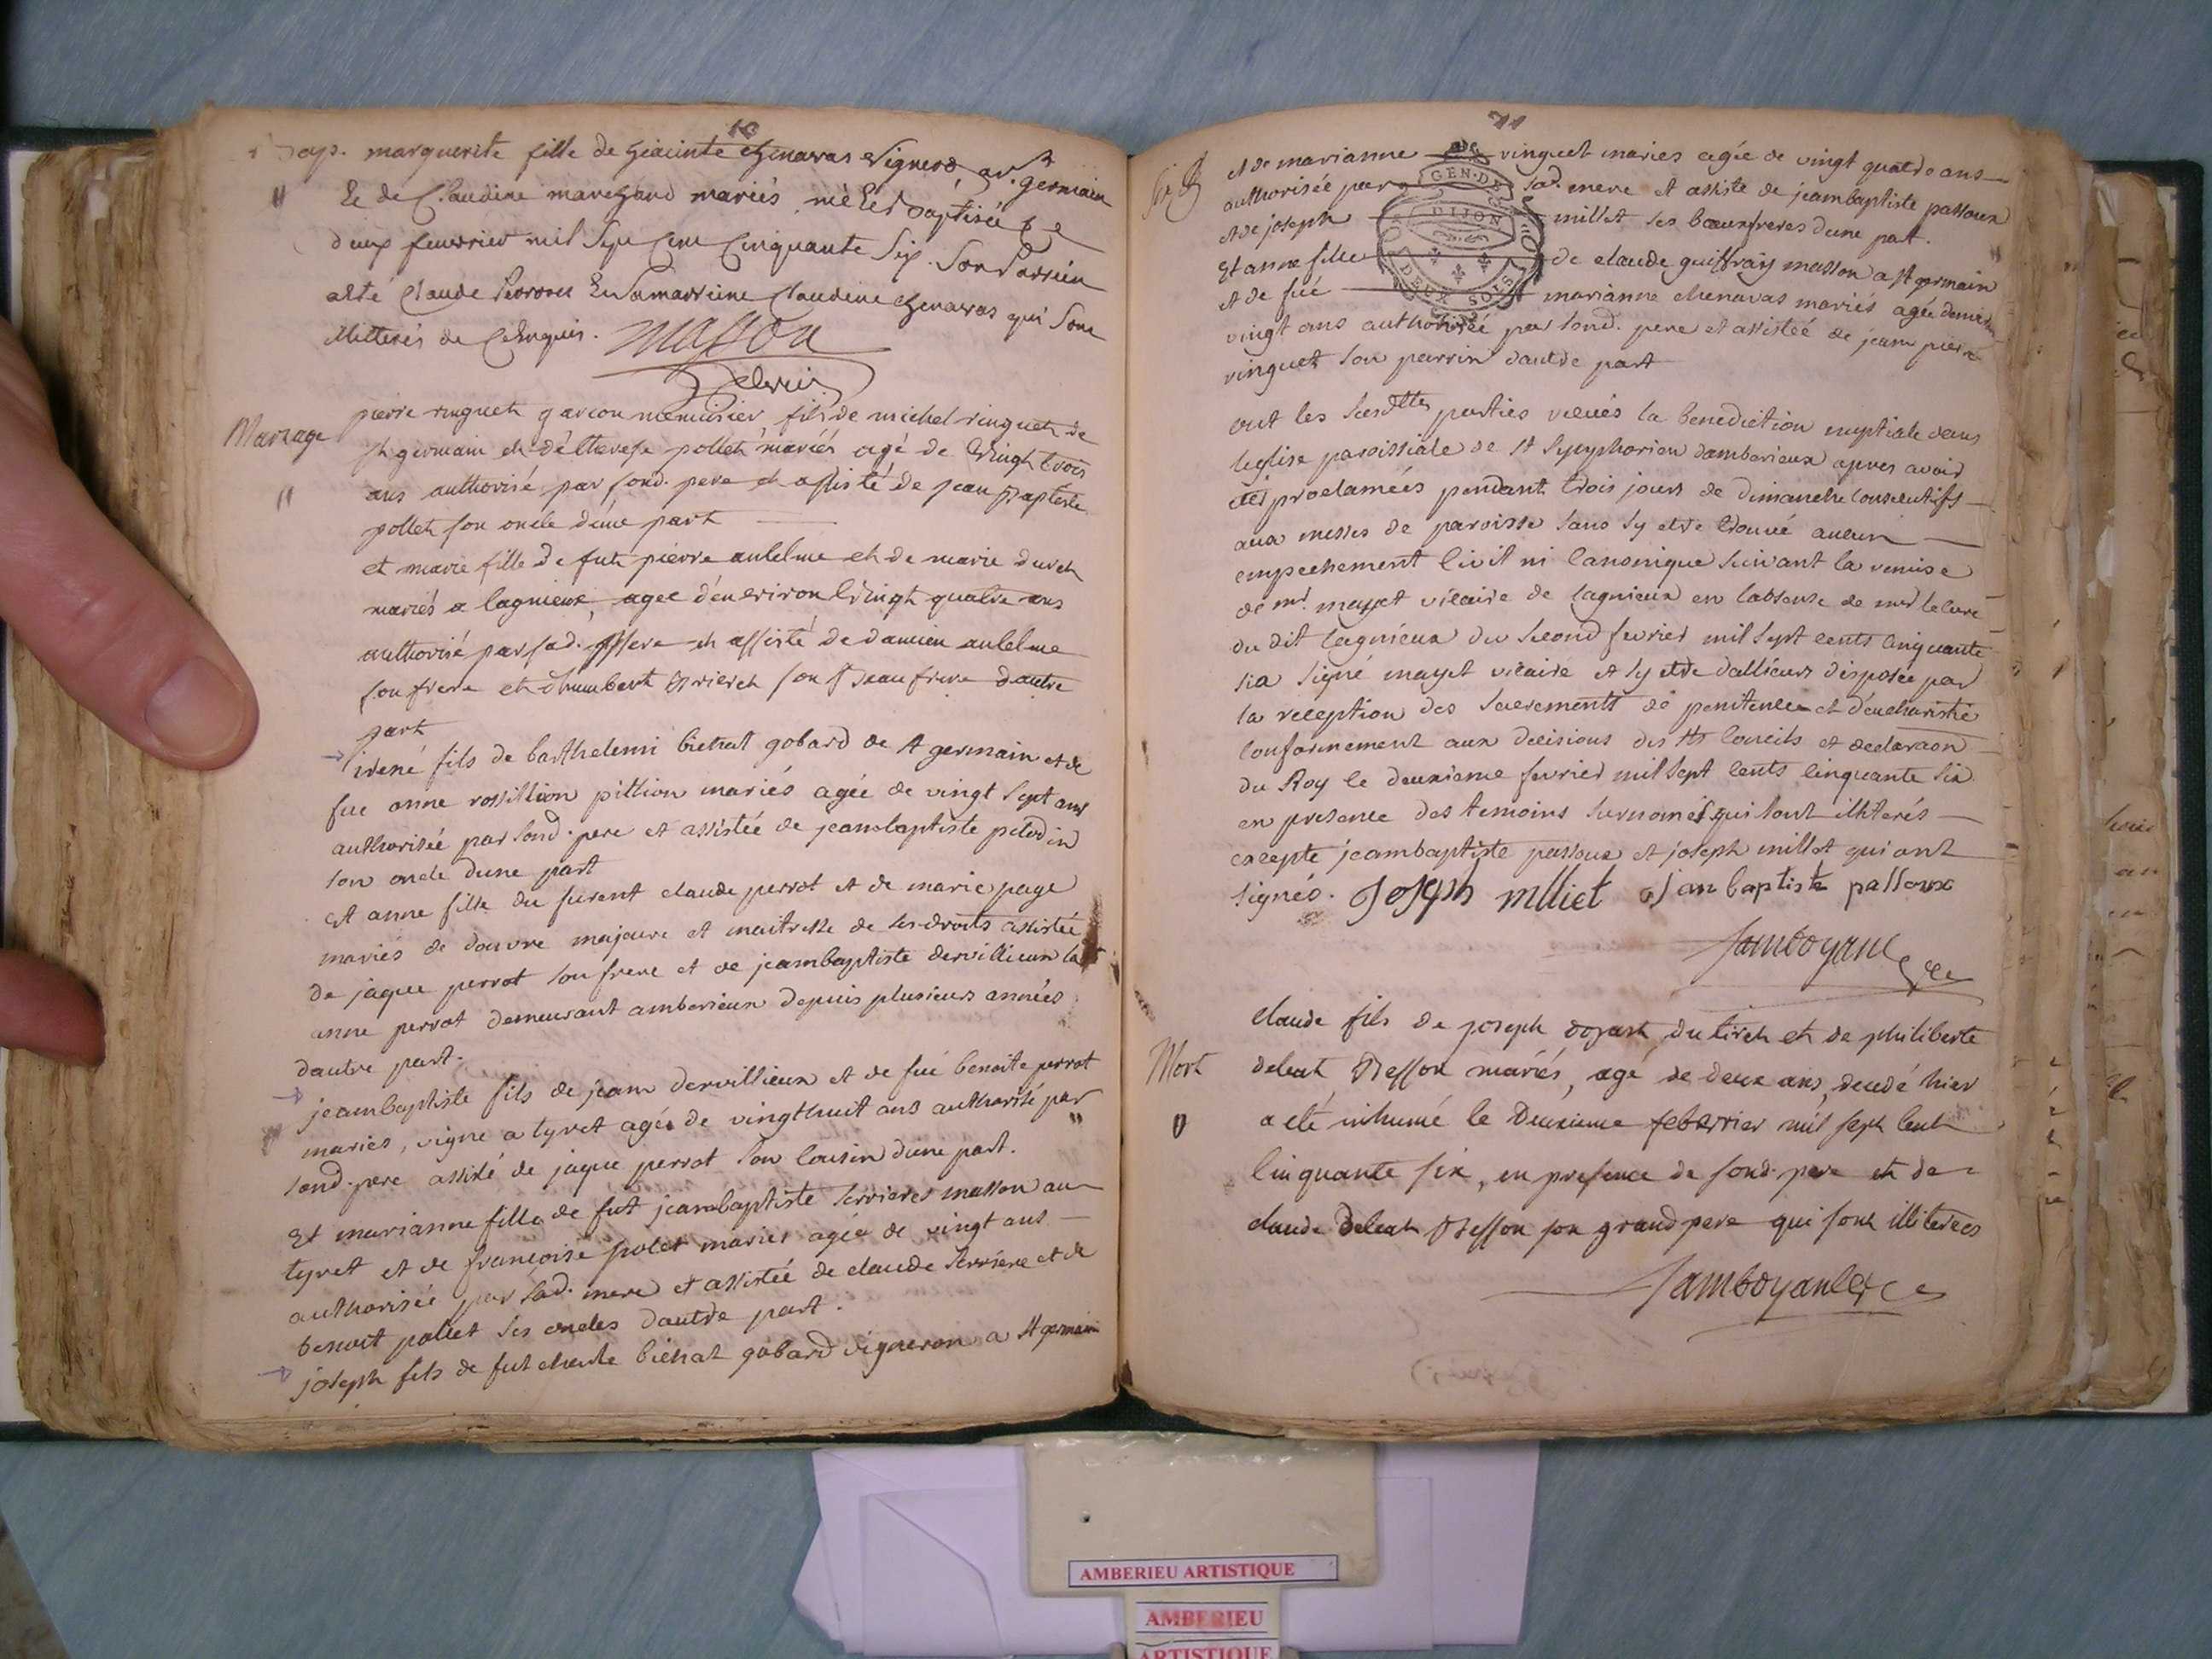 10
Bap. marguerite fille de hiacinte chenavas vigneron a St. germain
Et de Claudine marchand mariés, née Et baptisée Le
deux feuvrier mil Sept Cent Cinquante Six. Son Parrein
a eté Claude Et Sa marreine Claudine chenavas qui Sont
illiterés de Ce Enquis. Masson
Mariage
pierre ringuet garcon menuisier, fils de michel ringuet de
st germain et de therese pollet mariés agé de Vingt trois
ans authorisé par sond. pere et assisté de jean Baptiste
pollet son oncle d'une part
et marie fille de fut pierre anselme et de marie
mariés a lagnieux, agee d'environ Vingt quatre ans
authorisé par sad. mere et assisté de damien anselme
son frere et humbert son Beaufrere d'autre
part
irené fils de barthelemi bichat gobard de st germain et de
fue anne rossillion pittion mariés agée de vingt sept ans
authorisée par sond. pere et assistée de jeanbaptiste
son oncle dune part
Et anne fille du furent claude perrot et de marie page
mariés de douvre majeure et maitresse de ses droits assistée
de jaque perrot son frere et de jeambaptiste dervillieux lad
anne perrot demeurant amberieux depuis plusieurs années
dautre part.
jeambaptiste fils de jean dervillieux et de fué benoite perrot
mariés, vigne a tyret agée de vingthuit ans authorisé par
sond. pere assisté de jaque perrot son cousin dune part.
Et marianne fille de fut jeambaptiste serrieres masson au
tyret et de françoise polet mariés agée de vingt ans
authorisée par sad. mere et assistée de claude serriere et de
benoit pollet ses oncles dautre part.
joseph fils de fut bichat gobard vigneron a st germain
11
et de marianne vinguet mariés agée de vingt quatre ans
authorisée par sad. mere et assiste de jeambaptiste passoux
et de joseph millet ses beauxfreres dune part.
GEN. DE DIJON
DEUX SOLS
Et anne fille de claude guiffray masson a st germain
et de fué marianne chenavas mariés agée
vingt ans authorisée par sond. pere et assistée de jean pierre
vinguet son parrin dautre part
ont les susdttes parties receuës la benediction nuptiale dans
leglise paroissiale de st Symphorien damberieux apres avoir
étés proclamées pendant trois jours de dimanche consecutifs
aux messes de paroisse sans sy etre trouvé aucun
empechement civil ni canonique suivant la remise
de mr. mayet vicaire de lagnieux en labsense de mr le curé
du dit lagnieux du second fevrier mil sept cents cinquante
six signé mayet vicaire et sy etre dallieurs disposée par
la reception des sacrements de penitence et d'eucharistie
conformement aux decisions des sts conciels et declaraon
du Roy le deuxieme fevrier mil sept cents cinquante six
en presence des temoins surnomés qui sont illiterés
excepte jeambaptiste passoux et joseph millet qui ont
signés. Joseph milliet jan baptiste passoux
Jamboyant
Mort
claude fils de joseph bozart du tiret et de philiberte
deleat Besson mariés, agé de deux ans, decedé hier
a eté inhumé le Deuxieme febvrier mil sept cent
cinquante six, en presence de sond. pere et de
claude Deleat Besson son grandpere qui sont illiterées
Jamboyant
AMBERIEU ARTISTIQUE
AMBERIEU
ARTISTIQUE